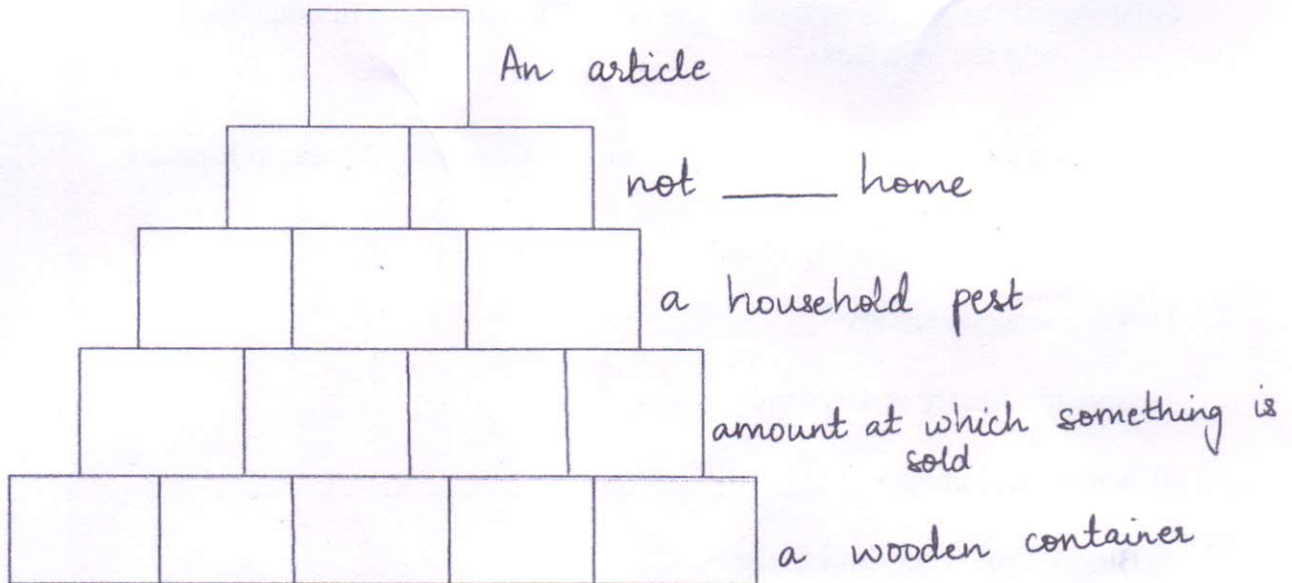 An article
not _____ home
a household pest
amount at which something is
sold
a wooden container